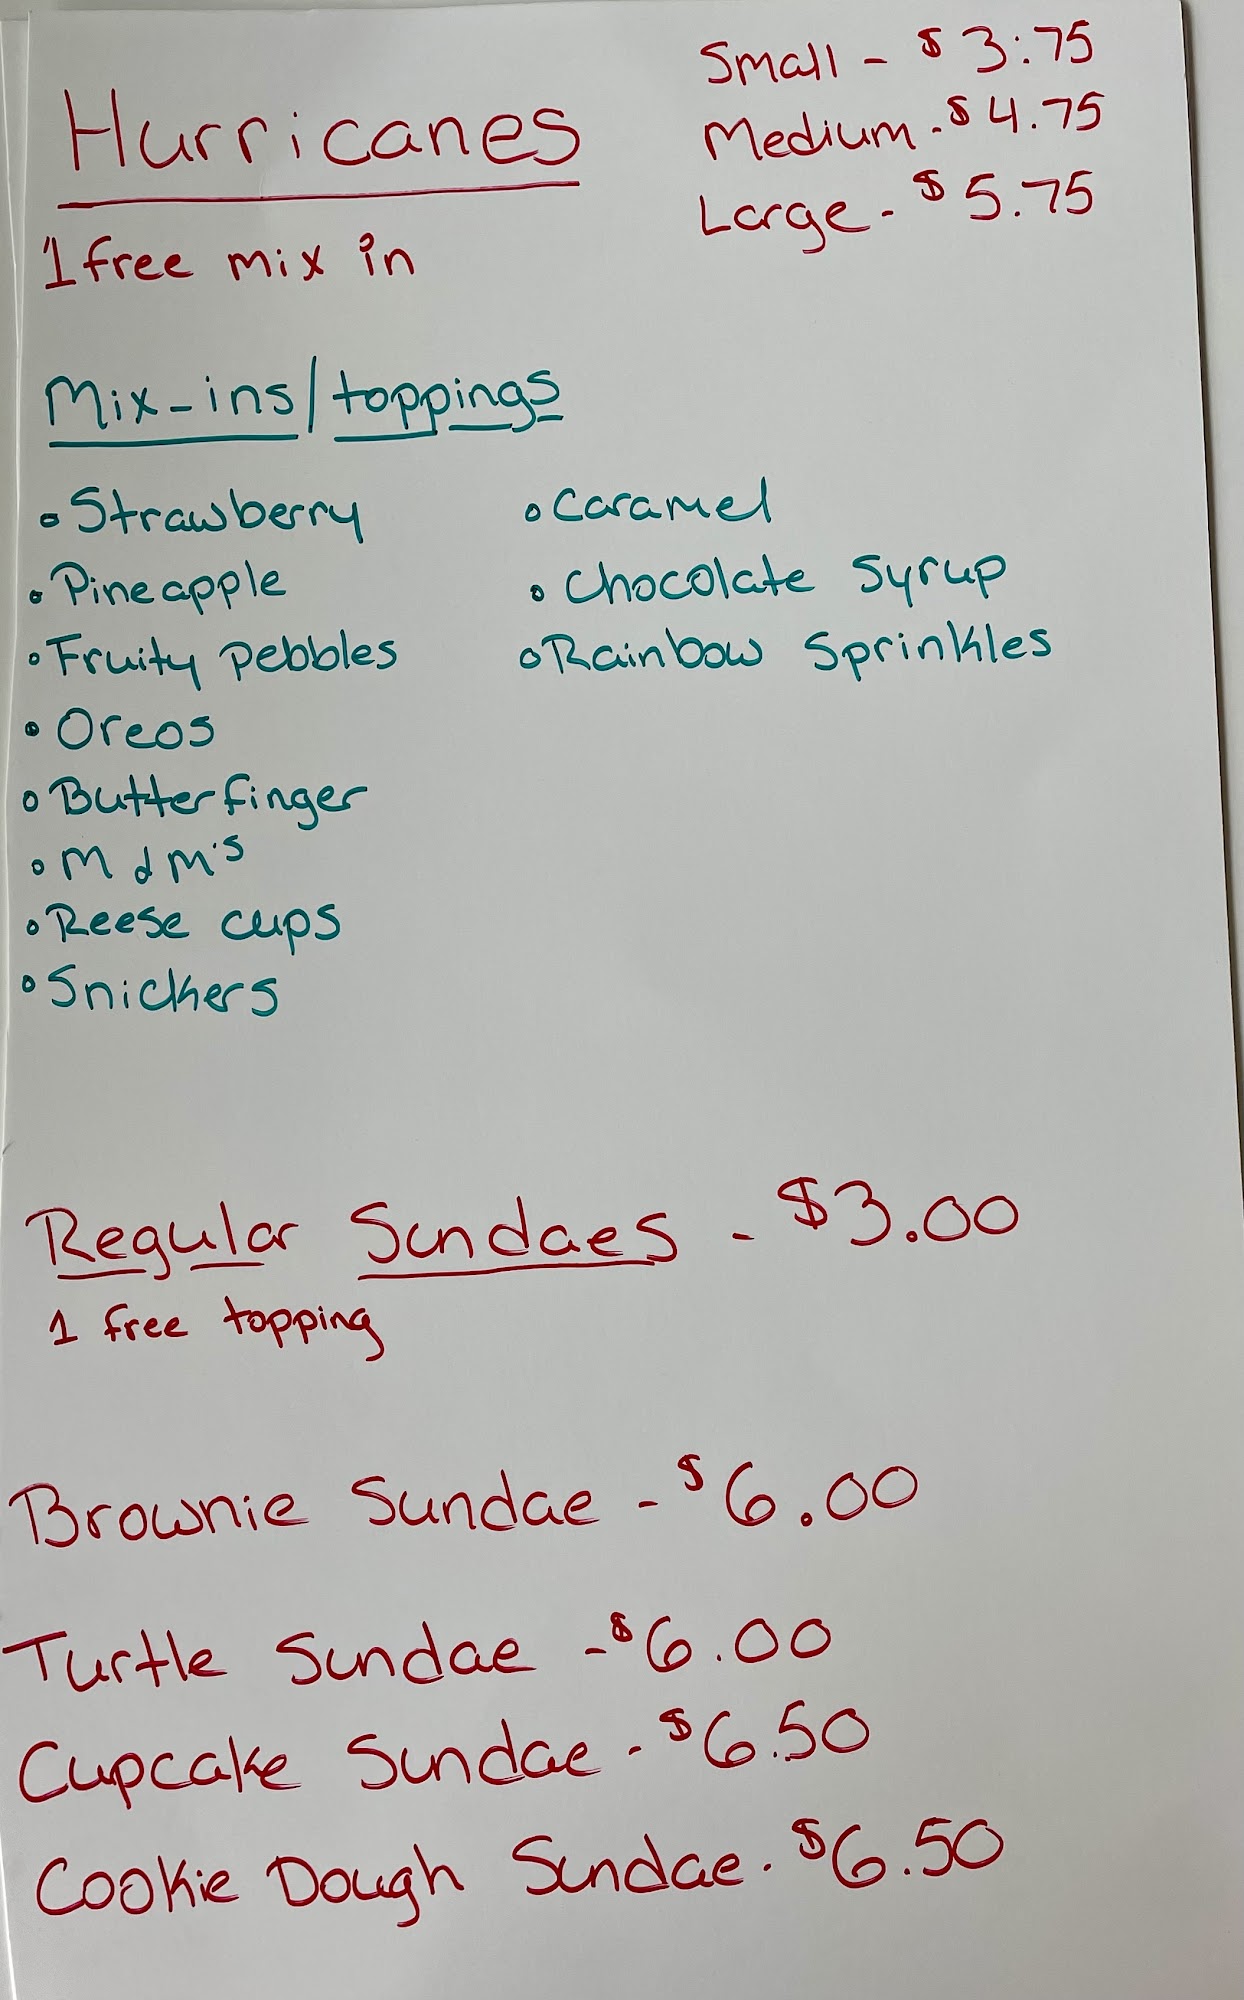 Hurricanes
Small - $3.75
Medium - $4.75
Large - $5.75
1 free mix in
Mix-ins/toppings
• Strawberry
• Pineapple
• Fruity pebbles
• Oreos
• Butterfinger
• M & M's
• Reese cups
• Snickers
• Caramel
• Chocolate Syrup
• Rainbow Sprinkles
Regular Sundaes - $3.00
1 free topping
Brownie Sundae - $6.00
Turtle Sundae - $6.00
Cupcake Sundae - $6.50
Cookie Dough Sundae - $6.50